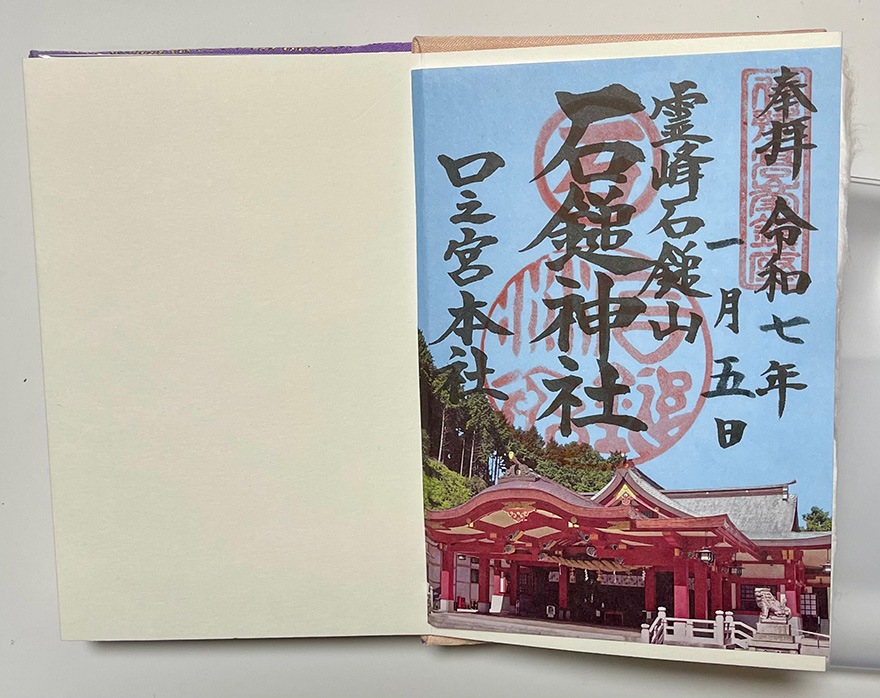 奉拝 令和七年
一月五日
霊峰石鎚山
石鎚神社
口之宮本社